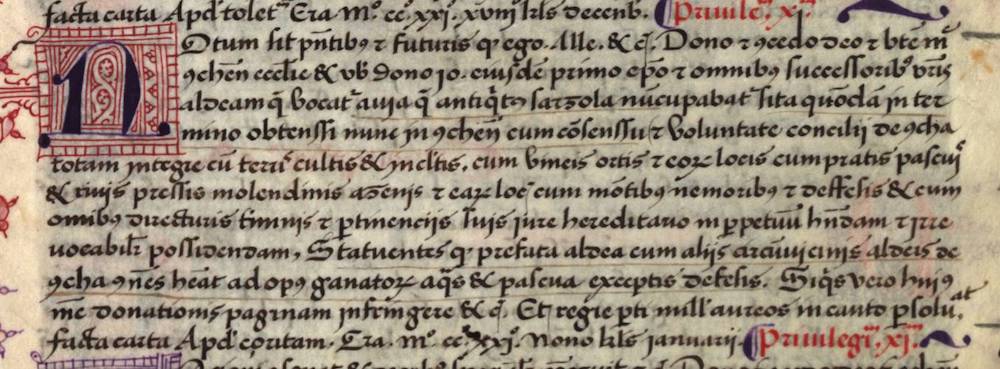 facta carta Apd̄ tolet̄ Era mº. ccº. xxi. xviij kłs decenb. Priuile. xi.
Notum sit pn̄tibꝯ ⁊ futuris qꝫ ego. Alle. & c̄. Dono ⁊ ꝯcedo deo ⁊ bt̄e m̄
ꝯchēn ecclīe & vob̄ dono jo. eiusdē primo ep̄o ⁊ omnibꝯ successoribꝯ vr̄is
aldeam q̄ vocat᷑ auia q̄ antiq̇tꝯ sarzola nūcupabat᷑ sita quōdā in ter
mino obtenssi nunc in ꝯchēn cum cōsenssu ⁊ voluntate concilij de ꝯcha
totam integre cū terrˢ cultis & incl̄tis. cum vineis ortis ⁊ eoꝝ locis cum pratis pascuiˢ
& riuis pressis molendinis açenijs ⁊ eaꝝ locˢ cum mōtibꝯ nemoribꝯ ⁊ deffesis & cum
omībꝯ directuris t̄minis ⁊ ꝑtinencijs suis iure hereditario in ꝑpetuū hn̄dam ⁊ irre
uocabilr̄ possidendam, Statuentes qꝫ prefata aldea cum alijs circūuicinis aldeis de
ꝯcha ꝯn̄es heāt ad opꝯ ganatoꝝ aq̄s & pascua exceptis defesis. Siq̇s vero huiꝯ
mē donationis paginam infringere & c̄. Et regie ꝑti mill̄ aureos in cauto ꝑsoluat,
facta carta Apd̄ Era. mº ccº. xxj. nono kłs januarij. Priuilegiū. xi.